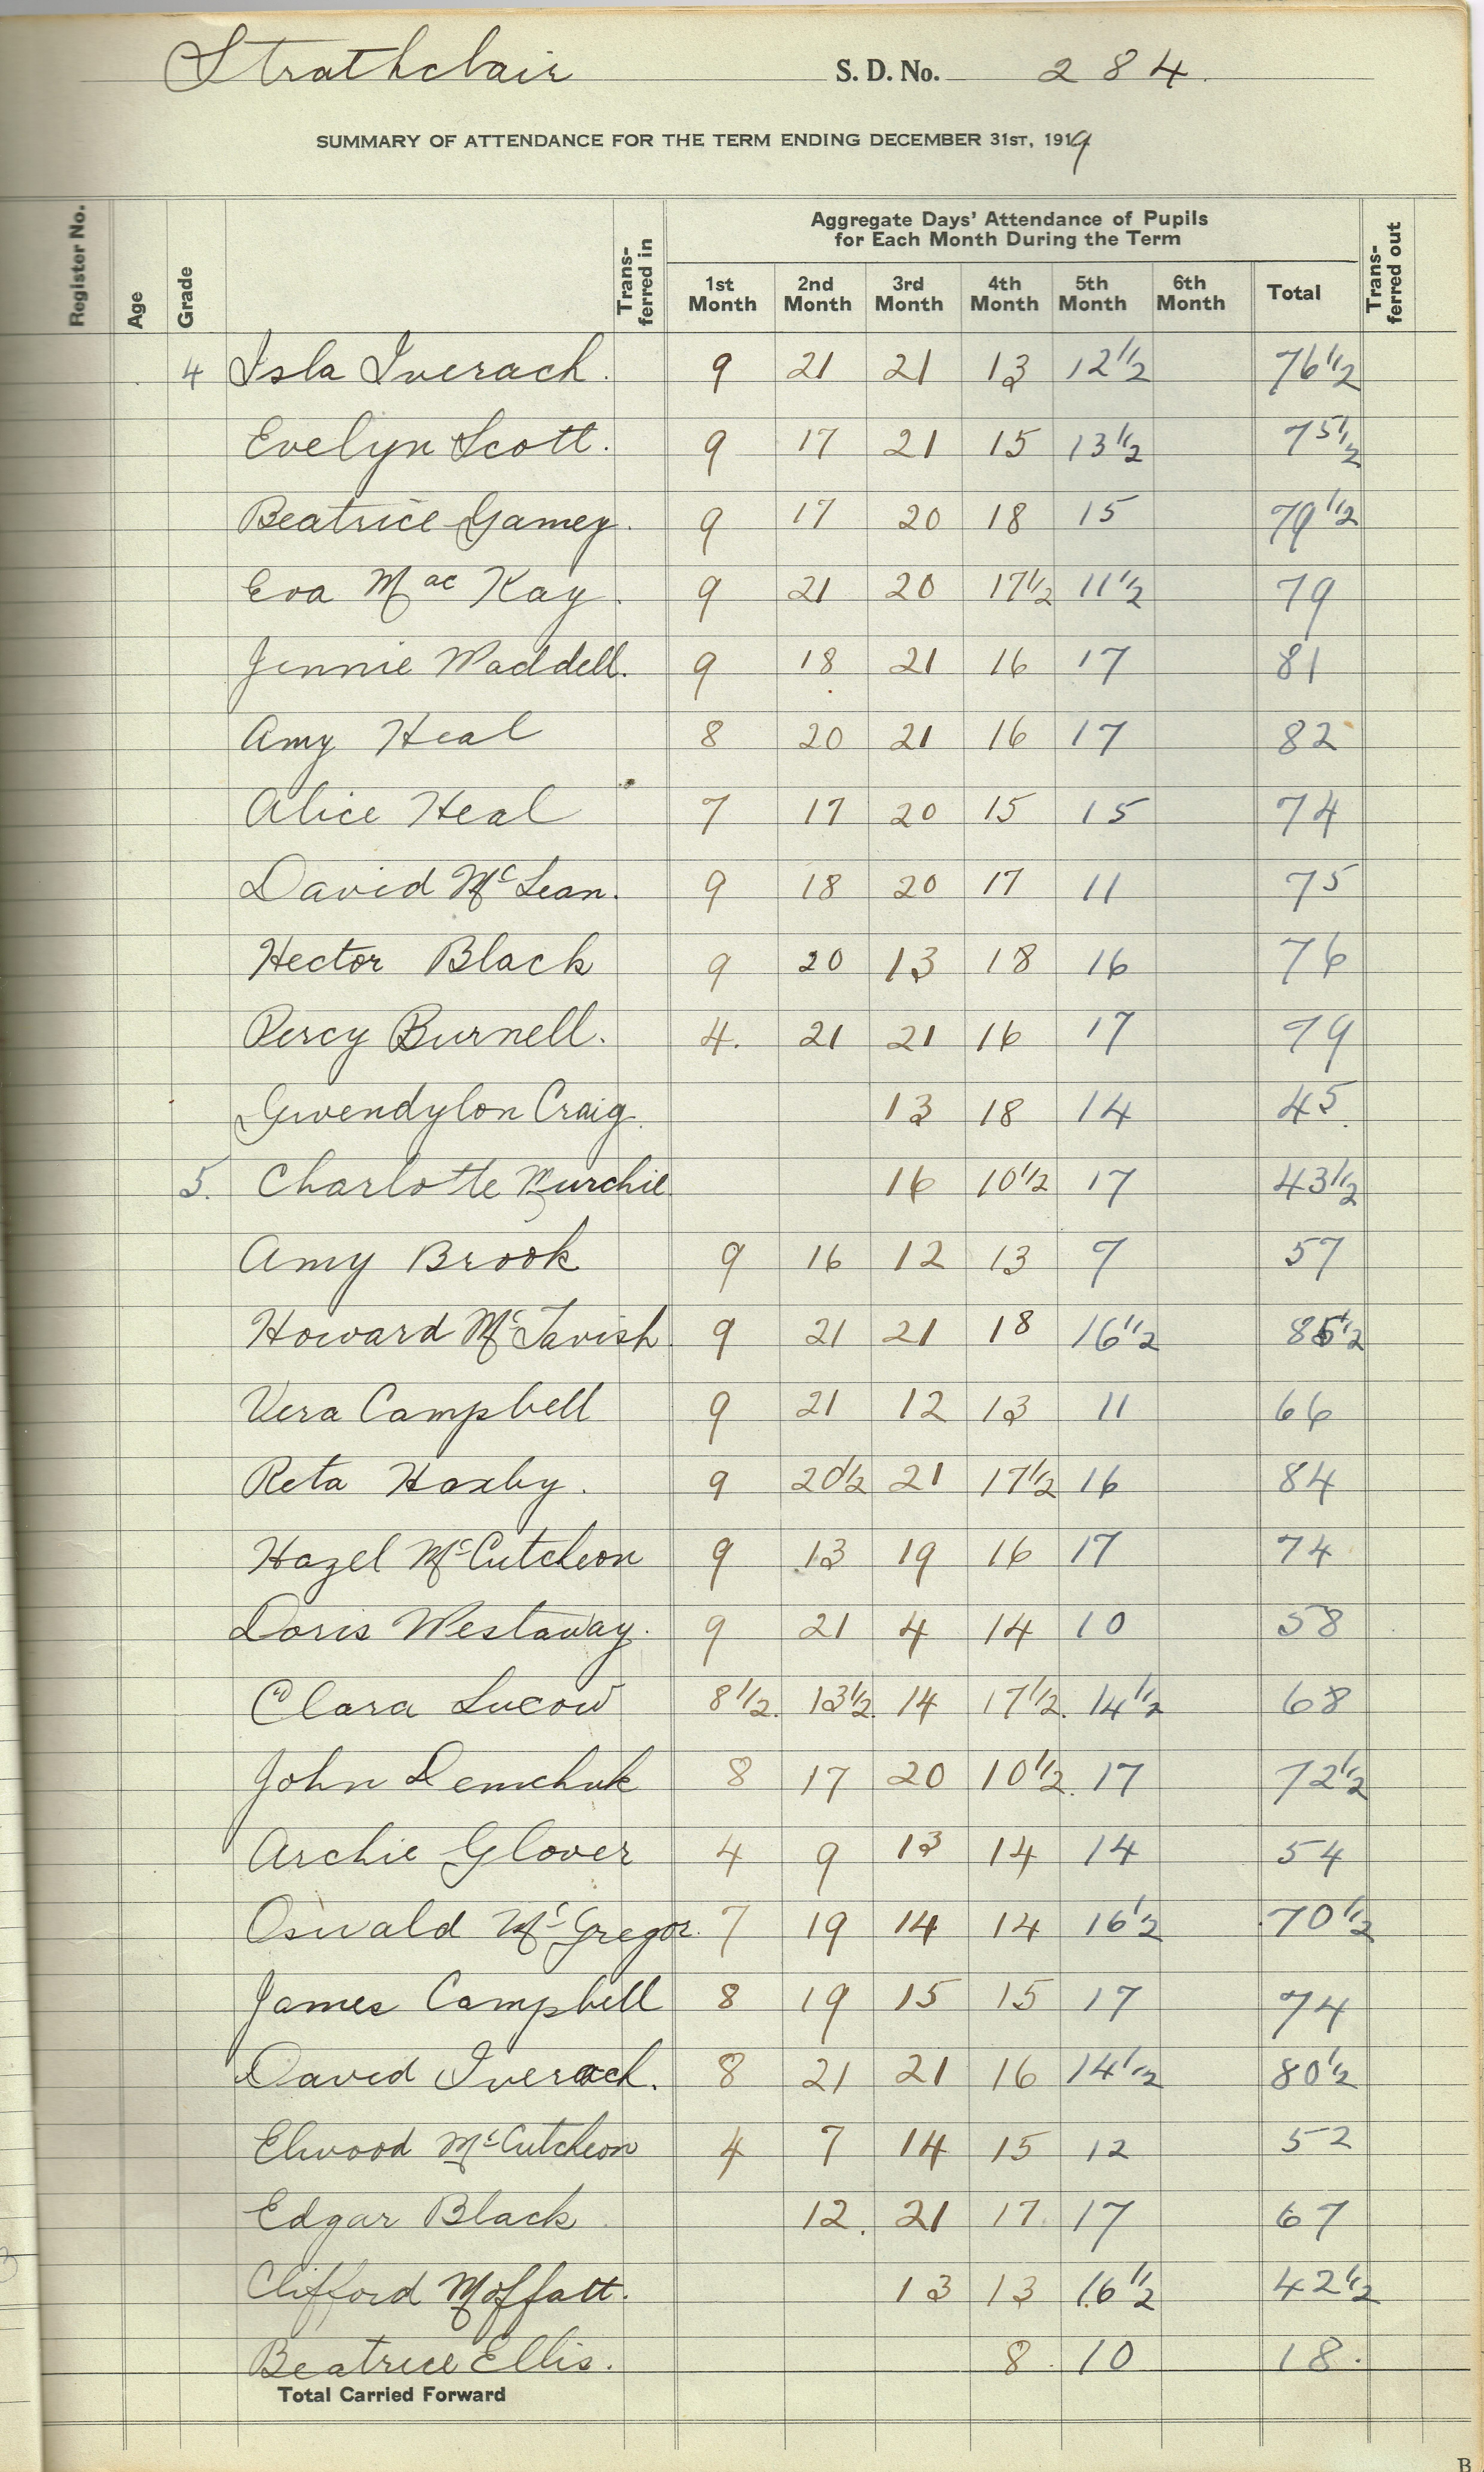 Strathclair S. D. No. 284.
SUMMARY OF ATTENDANCE FOR THE TERM ENDING DECEMBER 31ST, 1919
Register No. Age Grade Trans-ferred in Aggregate Days' Attendance of Pupils for Each Month During the Term Trans-ferred out
1st Month 2nd Month 3rd Month 4th Month 5th Month 6th Month Total
4 Isla Iverach. 9 21 21 13 12 1/2 76 1/2
Evelyn Scott. 9 17 21 15 13 1/2 75 1/2
Beatrice Gamey. 9 17 20 18 15 79 1/2
Eva MacKay. 9 21 20 17 1/2 11 1/2 79
Jennie Waddell. 9 18 21 16 17 81
Amy Heal 8 20 21 16 17 82
Alice Heal 7 17 20 15 15 74
David McLean. 9 18 20 17 11 75
Hector Black 9 20 13 18 16 76
Percy Burnell. 4. 21 21 16 17 79
Gwendylon Craig. 13 18 14 45.
5. Charlotte Murchie 16 10 1/2 17 43 1/2
Amy Brook 9 16 12 13 7 57
Howard McTavish. 9 21 21 18 16 1/2 85 1/2
Vera Campbell 9 21 12 13 11 66
Reta Haxby. 9 20 1/2 21 17 1/2 16 84
Hazel McCutcheon 9 13 19 16 17 74
Doris Westaway. 9 21 4 14 10 58
Clara Lucow 8 1/2. 13 1/2. 14 17 1/2. 14 1/2 68
John Demchuk 8 17 20 10 1/2. 17 72 1/2
Archie Glover 4 9 13 14 14 54
Oswald McGregor. 7 19 14 14 16 1/2 70 1/2
James Campbell 8 19 15 15 17 74
David Iverach. 8 21 21 16 14 1/2 80 1/2
Elwood McCutcheon 4 7 14 15 12 52
Edgar Black 12. 21 17. 17 67
Clifford Moffatt. 13 13 16 1/2 42 1/2
Beatrice Ellis. 8. 10 18.
Total Carried Forward
B